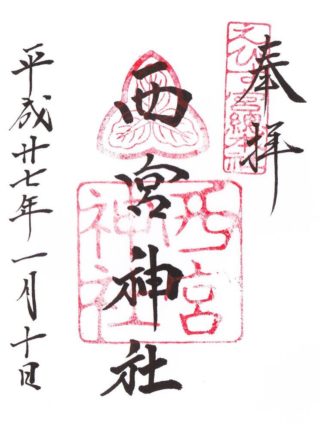 奉拝
えびす宮総本社
西宮神社
西宮神社
平成廿七年一月十日